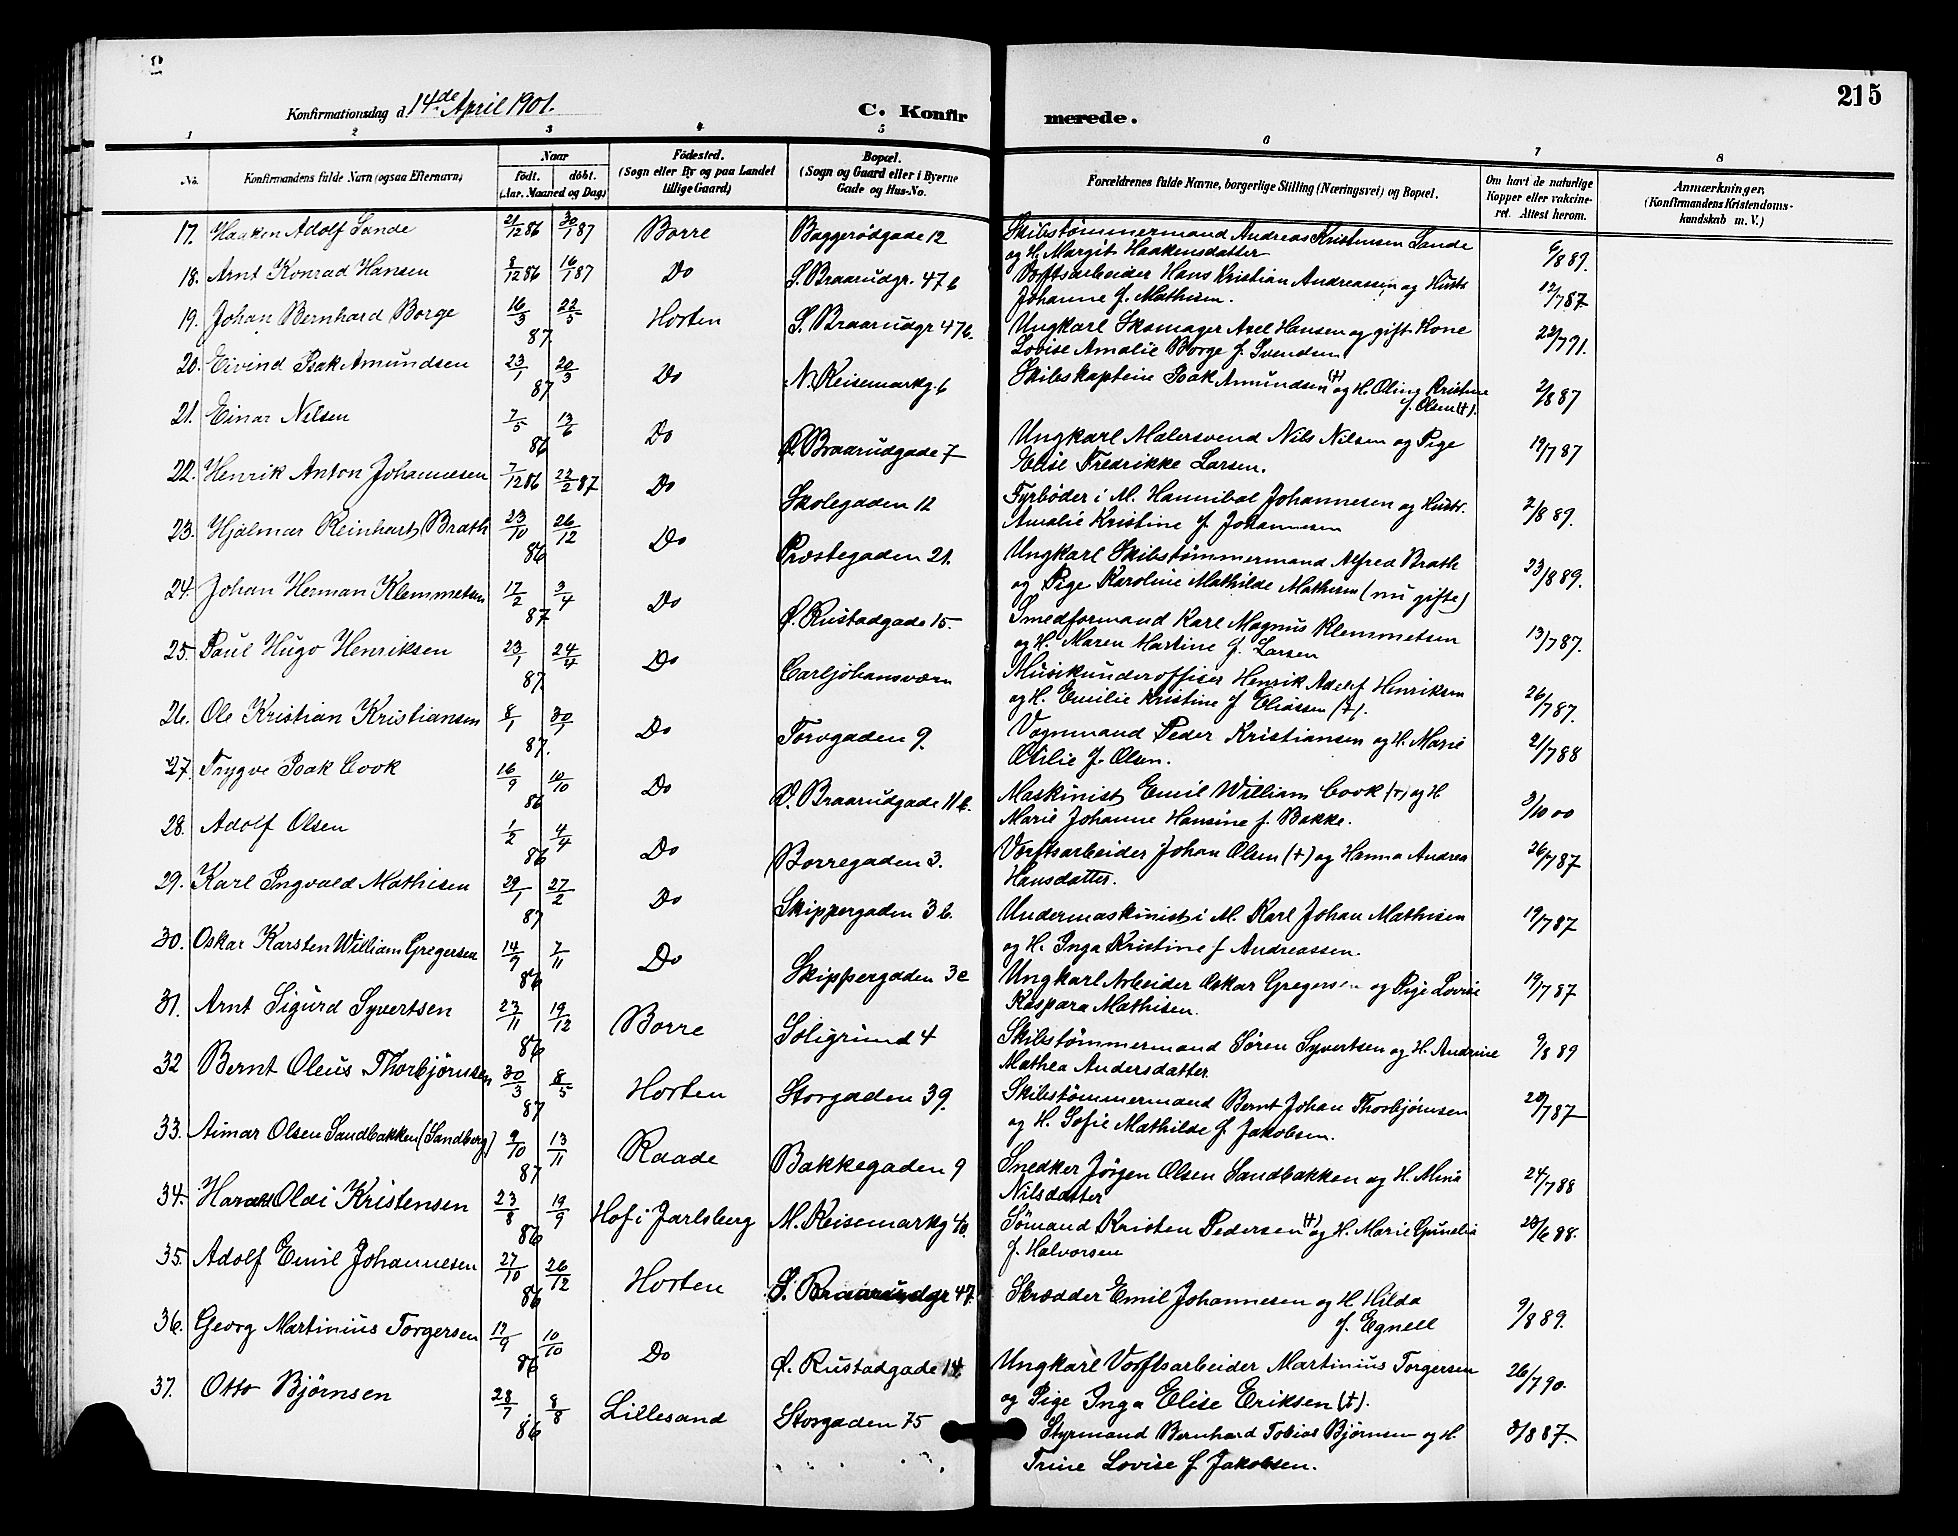 215
Konfirmationsdag d. 14de April 1901.
C. Konfirmerede.
1 2 3 4 5 6 7 8
No. Konfirmandens fulde Navn (ogsaa Efternavn) Naar født. døbt. (Aar, Maaned og Dag) Fødested. (Sogn eller By og paa Landet tillige Gaard) Bopæl. (Sogn og Gaard eller i Byerne Gade og Hus-No. Forældrenes fulde Navne, borgerlige Stilling (Næringsvei) og Bopæl. Om havt de naturlige Kopper eller vakcineret. Attest herom. Anmærkninger. (Konfirmandens Kristendomskundskab m. V.)
17. Haaken Adolf Sande 21/12 86 30/1 87 Borre Baggerødgade 12 Skibstømmermand Andreas Kristensen Sande og H. Margit Haakensdatter 6/8 89.
18. Arnt Konrad Hansen 8/12 86 16/1 87 Do S. Braarudgr. 47 b Værftsarbeider Hans Kristian Andreassen og Hustr. Johanne f. Mathisen. 12/7 87
19. Johan Bernhard Borge 16/3 22/5 87 Horten S. Braarudgr 47 b. Ungkarl Skomager Axel Hansen og gift Kone Lovise Amalie Borge f. Svendsen 22/7 91.
20. Eivind Isak Amundsen 23/1 20/3 87 Do N. Keisemarkg. 6 Skibskaptein Isak Amundsen (+) og H. Oline Kristine f. Olsen (+). 2/8 87
21. Einar Nilsen 7/5 13/6 86 Do Ø. Braarudgade 7 Ungkarl Malersvend Nils Nilsen og Pige Elise Fredrikke Larsen. 19/7 87
22. Henrik Anton Johannesen 7/12 86 22/2 87 Do Skolegaden 12 Fyrbøder i M. Hannibal Johannesen og Hustr. Amalie Kristine f. Johannesen 2/8 89.
23. Hjalmar Reinhart Brath 23/10 26/12 86 Do Præstegaden 21. Ungkarl Skibstømmermand Alfred Brath og Pige Karoline Mathilde Mathisen (nu gifte) 23/8 89.
24. Johan Herman Klemmetsen 17/2 3/4 87 Do Ø. Rustadgade 15. Smedformand Karl Magnus Klemmetsen og H. Maren Martine f. Larsen 13/7 87.
25. Paul Hugo Henriksen 23/1 24/4 87. Do Carljohansværn Musikunderofficer Henrik Adolf Henriksen og H. Emilie Kristine f. Eliassen (+). 26/7 87.
26. Ole Kristian Kristiansen 8/1 30/1 87. Do Torvgaden 9. Vognmand Peder Kristiansen og H. Marie Otilie f. Olsen. 2/7 88
27. Trygve Isak Cook 16/9 10/10 86 Do Ø. Braarudgade 11 b. Maskinist Emil William Cook (+) og H. Marie Johanne Hansine f. Bakke. 3/10 00
28. Adolf Olsen 1/2 4/4 86 Do Borregaden 3. Værftsarbeider Johan Olsen (+) og Hanna Andrea Hansdatter. 26/7 87
29. Karl Ingvald Mathisen 29/1 27/2 87 Do Skippergaden 3 b. Undermaskinist i M. Karl Johan Mathisen og H. Inga Kristine f. Andreassen. 19/7 87
30. Oskar Karsten William Gregersen 14/9 7/11 86 Do Skippergaden 3 c Ungkarl Arbeider Oskar Gregersen og Pige Lovise Kaspara Mathisen. 19/7 87
31. Arnt Sigurd Syvertsen 23/11 19/12 86 Borre Soligrund 4 Skibstømmermand Søren Syvertsen og H. Andrine Mathea Andersdatter 9/8 89
32 Bernt Oleus Thorbjørnsen 30/3 8/5 87 Horten Storgaden 39. Skibstømmermand Bernt Johan Thorbjørnsen og H. Sofie Mathilde f. Jakobsen. 20/7 87
33. Aimar Olsen Sandbakken (Sandberg) 9/10 13/11 87 Raade Bakkegaden 9 Snedker Jørgen Olsen Sandbakken og H. Mina Nilsdatter 24/7 88
34. Harald Oldi Kristensen 23/8 19/9 86 Hof i Jarlsberg M. Keisemarkg 40. Sømand Kristen Pedersen (+) og H. Marie Gunelia f. Halvorsen 20/6 88.
35. Adolf Emil Johannesen 27/10 26/12 86 Horten S. Braarudgr 47. Skrædder Emil Johannesen og H. Hilda f. Egnell 9/8 89.
36. Georg Martinius Torgersen 17/9 10/10 86 Do Ø. Rustadgade 14. Ungkarl Værftsarbeider Martinius Torgersen og Pige Inga Elise Eriksen (+). 26/7 90.
37. Otto Bjørnsen 28/7 8/8 86 Lillesand Storgaden 75 Styrmand Bernhard Tobias Bjørnsen og H. Trine Lovise f. Jakobsen. 3/8 87.